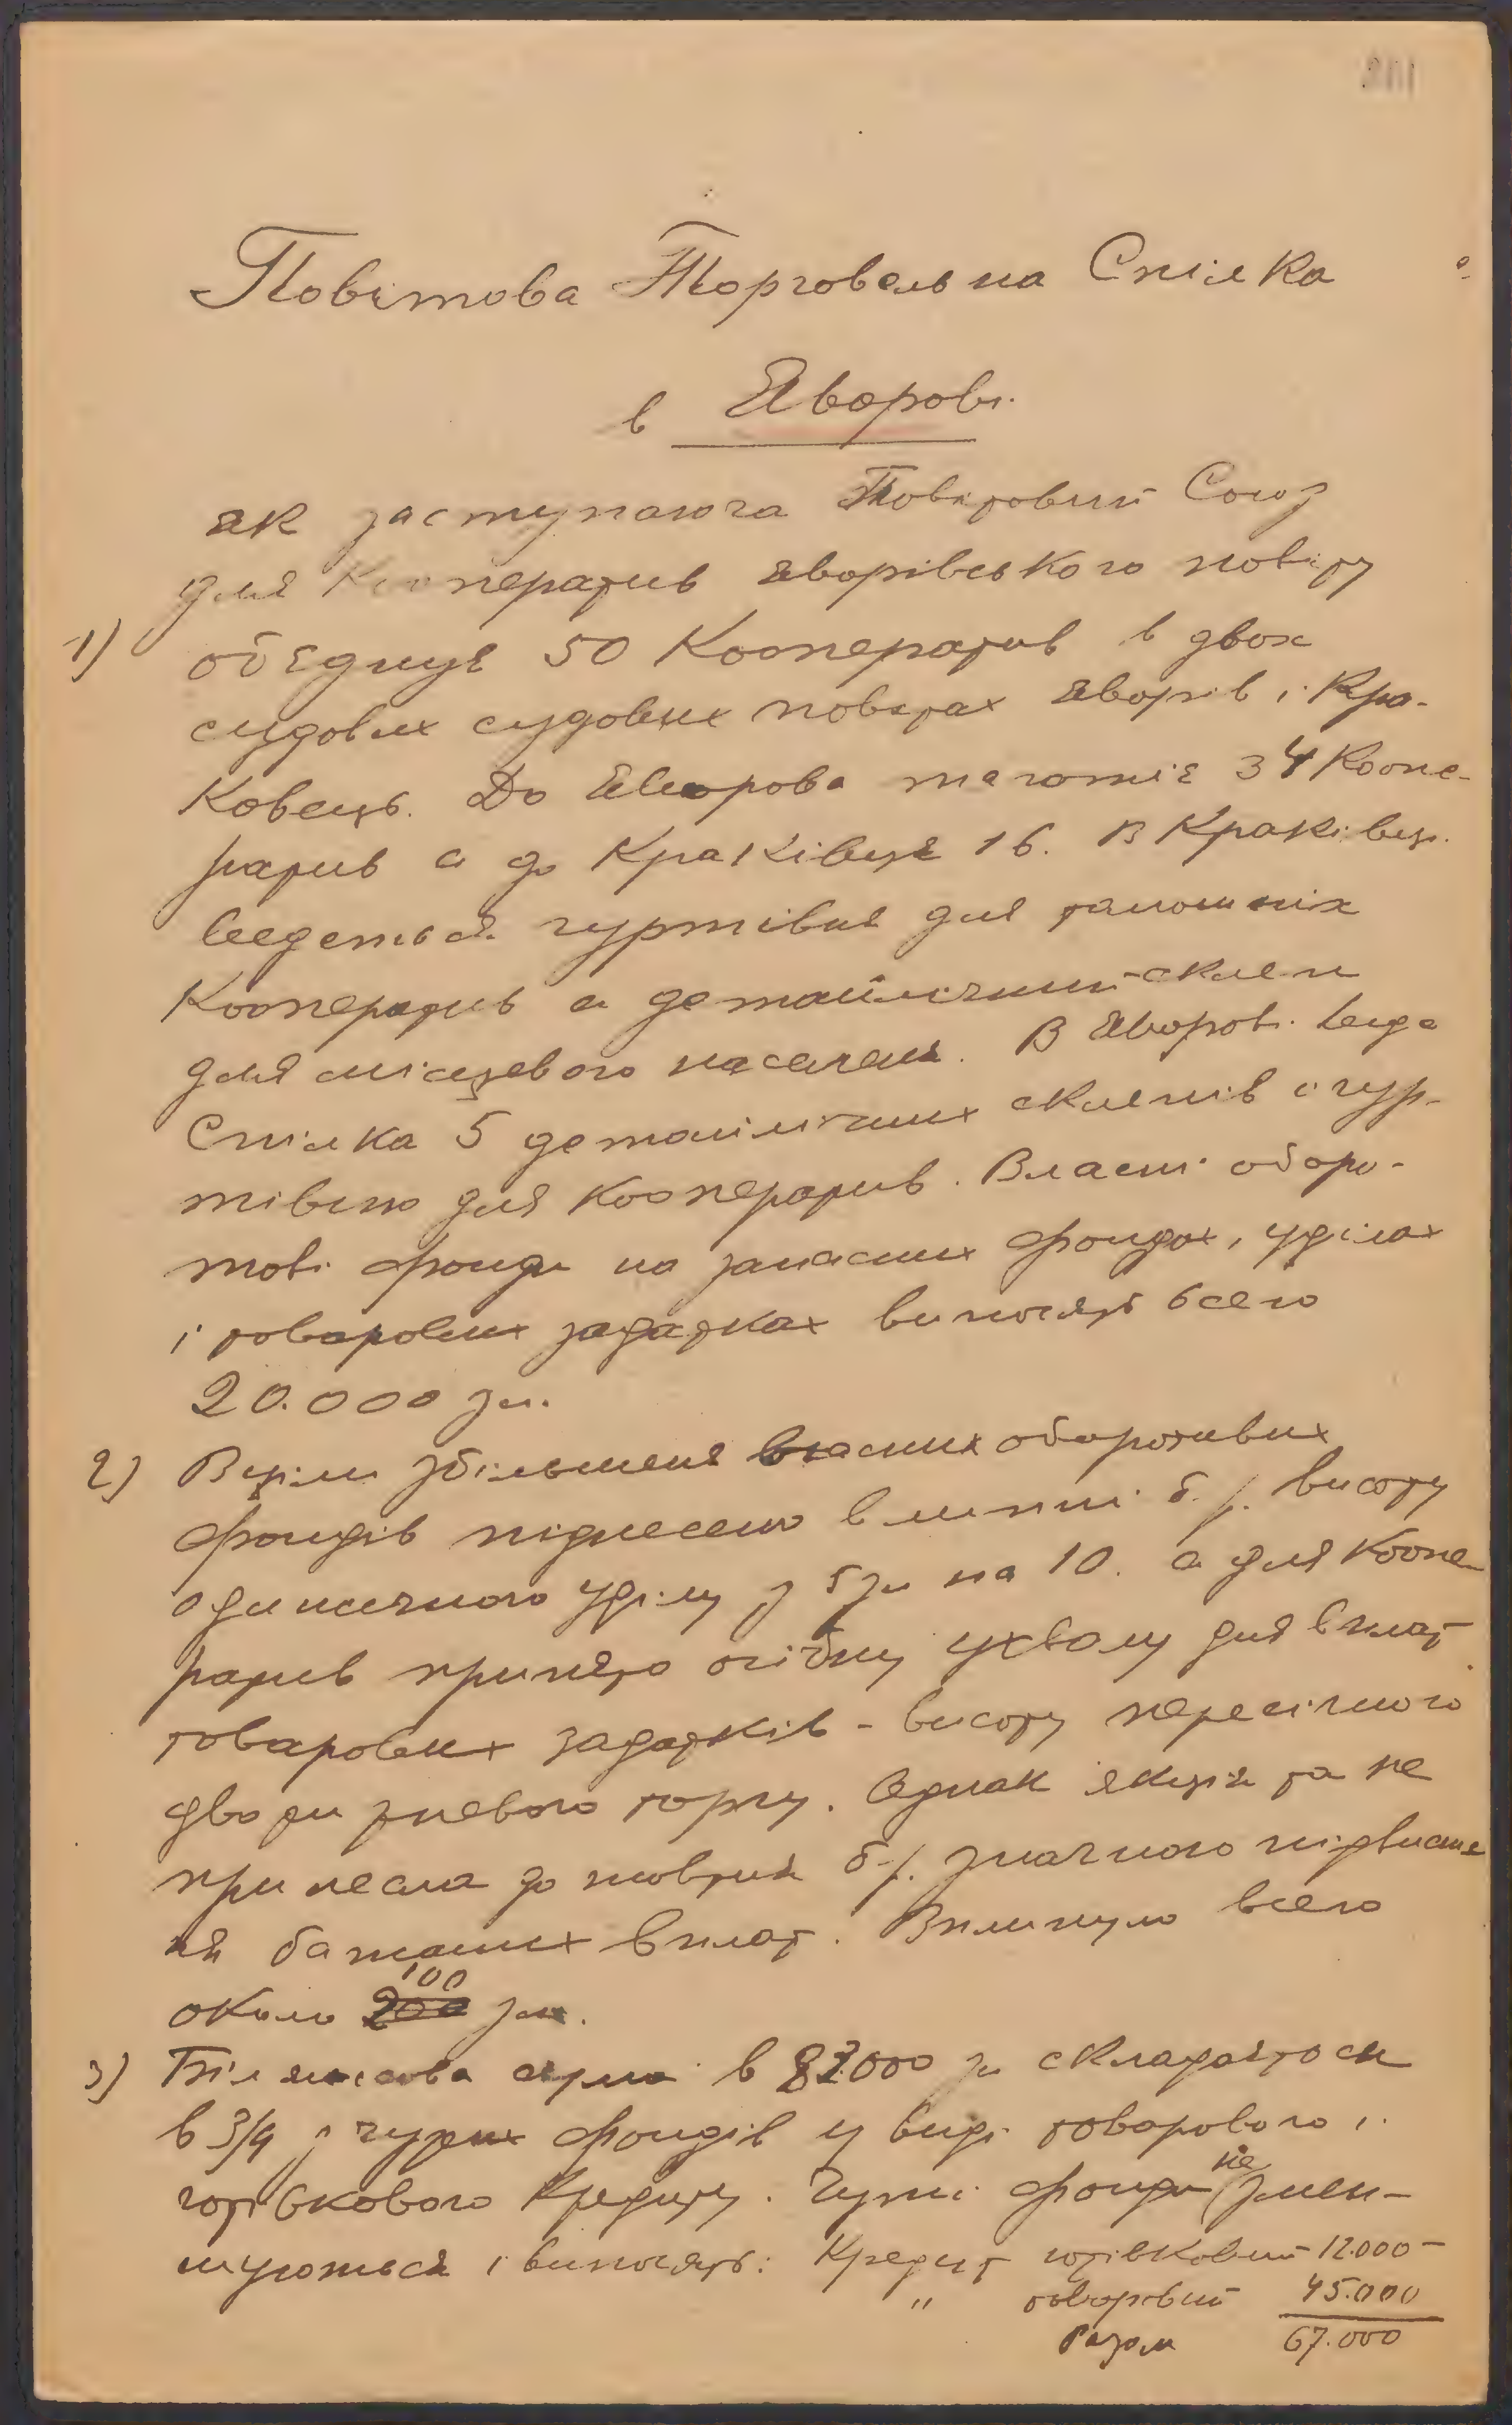 Повітова Торговельна Спілка
в Яворові.
як заступаюча Повітовий Союз
для Кооператив яворівського повіту
1) обєднує 50 Кооператив в двох
судових судових повітах Яворів і Кра-
ковець. До Яворова тяготіє 34 Коопе-
ратив а до Краківця 16. В Краківци
ведеться гуртівня для тамошніх
Кооператив а детайлічний склеп
для місцевого населеня. В Яворові веде
Спілка 5 детайлічних склепів і гур-
тівню для Кооператив. Власні оборо-
тові фонди на запасних фондах, уділах
і товарових задатках виносять всего
20.000 зл.
2) В ціли збільшеня власних оборотових
фондів піднесено в липні б. р. висоту
одиничного уділу з 5 зл на 10. а для Коопе-
ратив принято осібну ухвалу для вплат
товарових задатків - висоту пересічного
двотижневого торгу. Однак якція та не
принесла до жовтня б. р. значного підвисше
ня бажаних вплат. Вплинуло всего
около 200 100 зл.
3) Білянсова сума в 87.000 зл складаєтоси
в 3/4 з чужих фондів у виді товарового і
готівкового Кредиту. Чужі фонди не змен-
шуються і виносять: Кредит готівковий 12.000 -
" товаровий 45.000
Разом 67.000